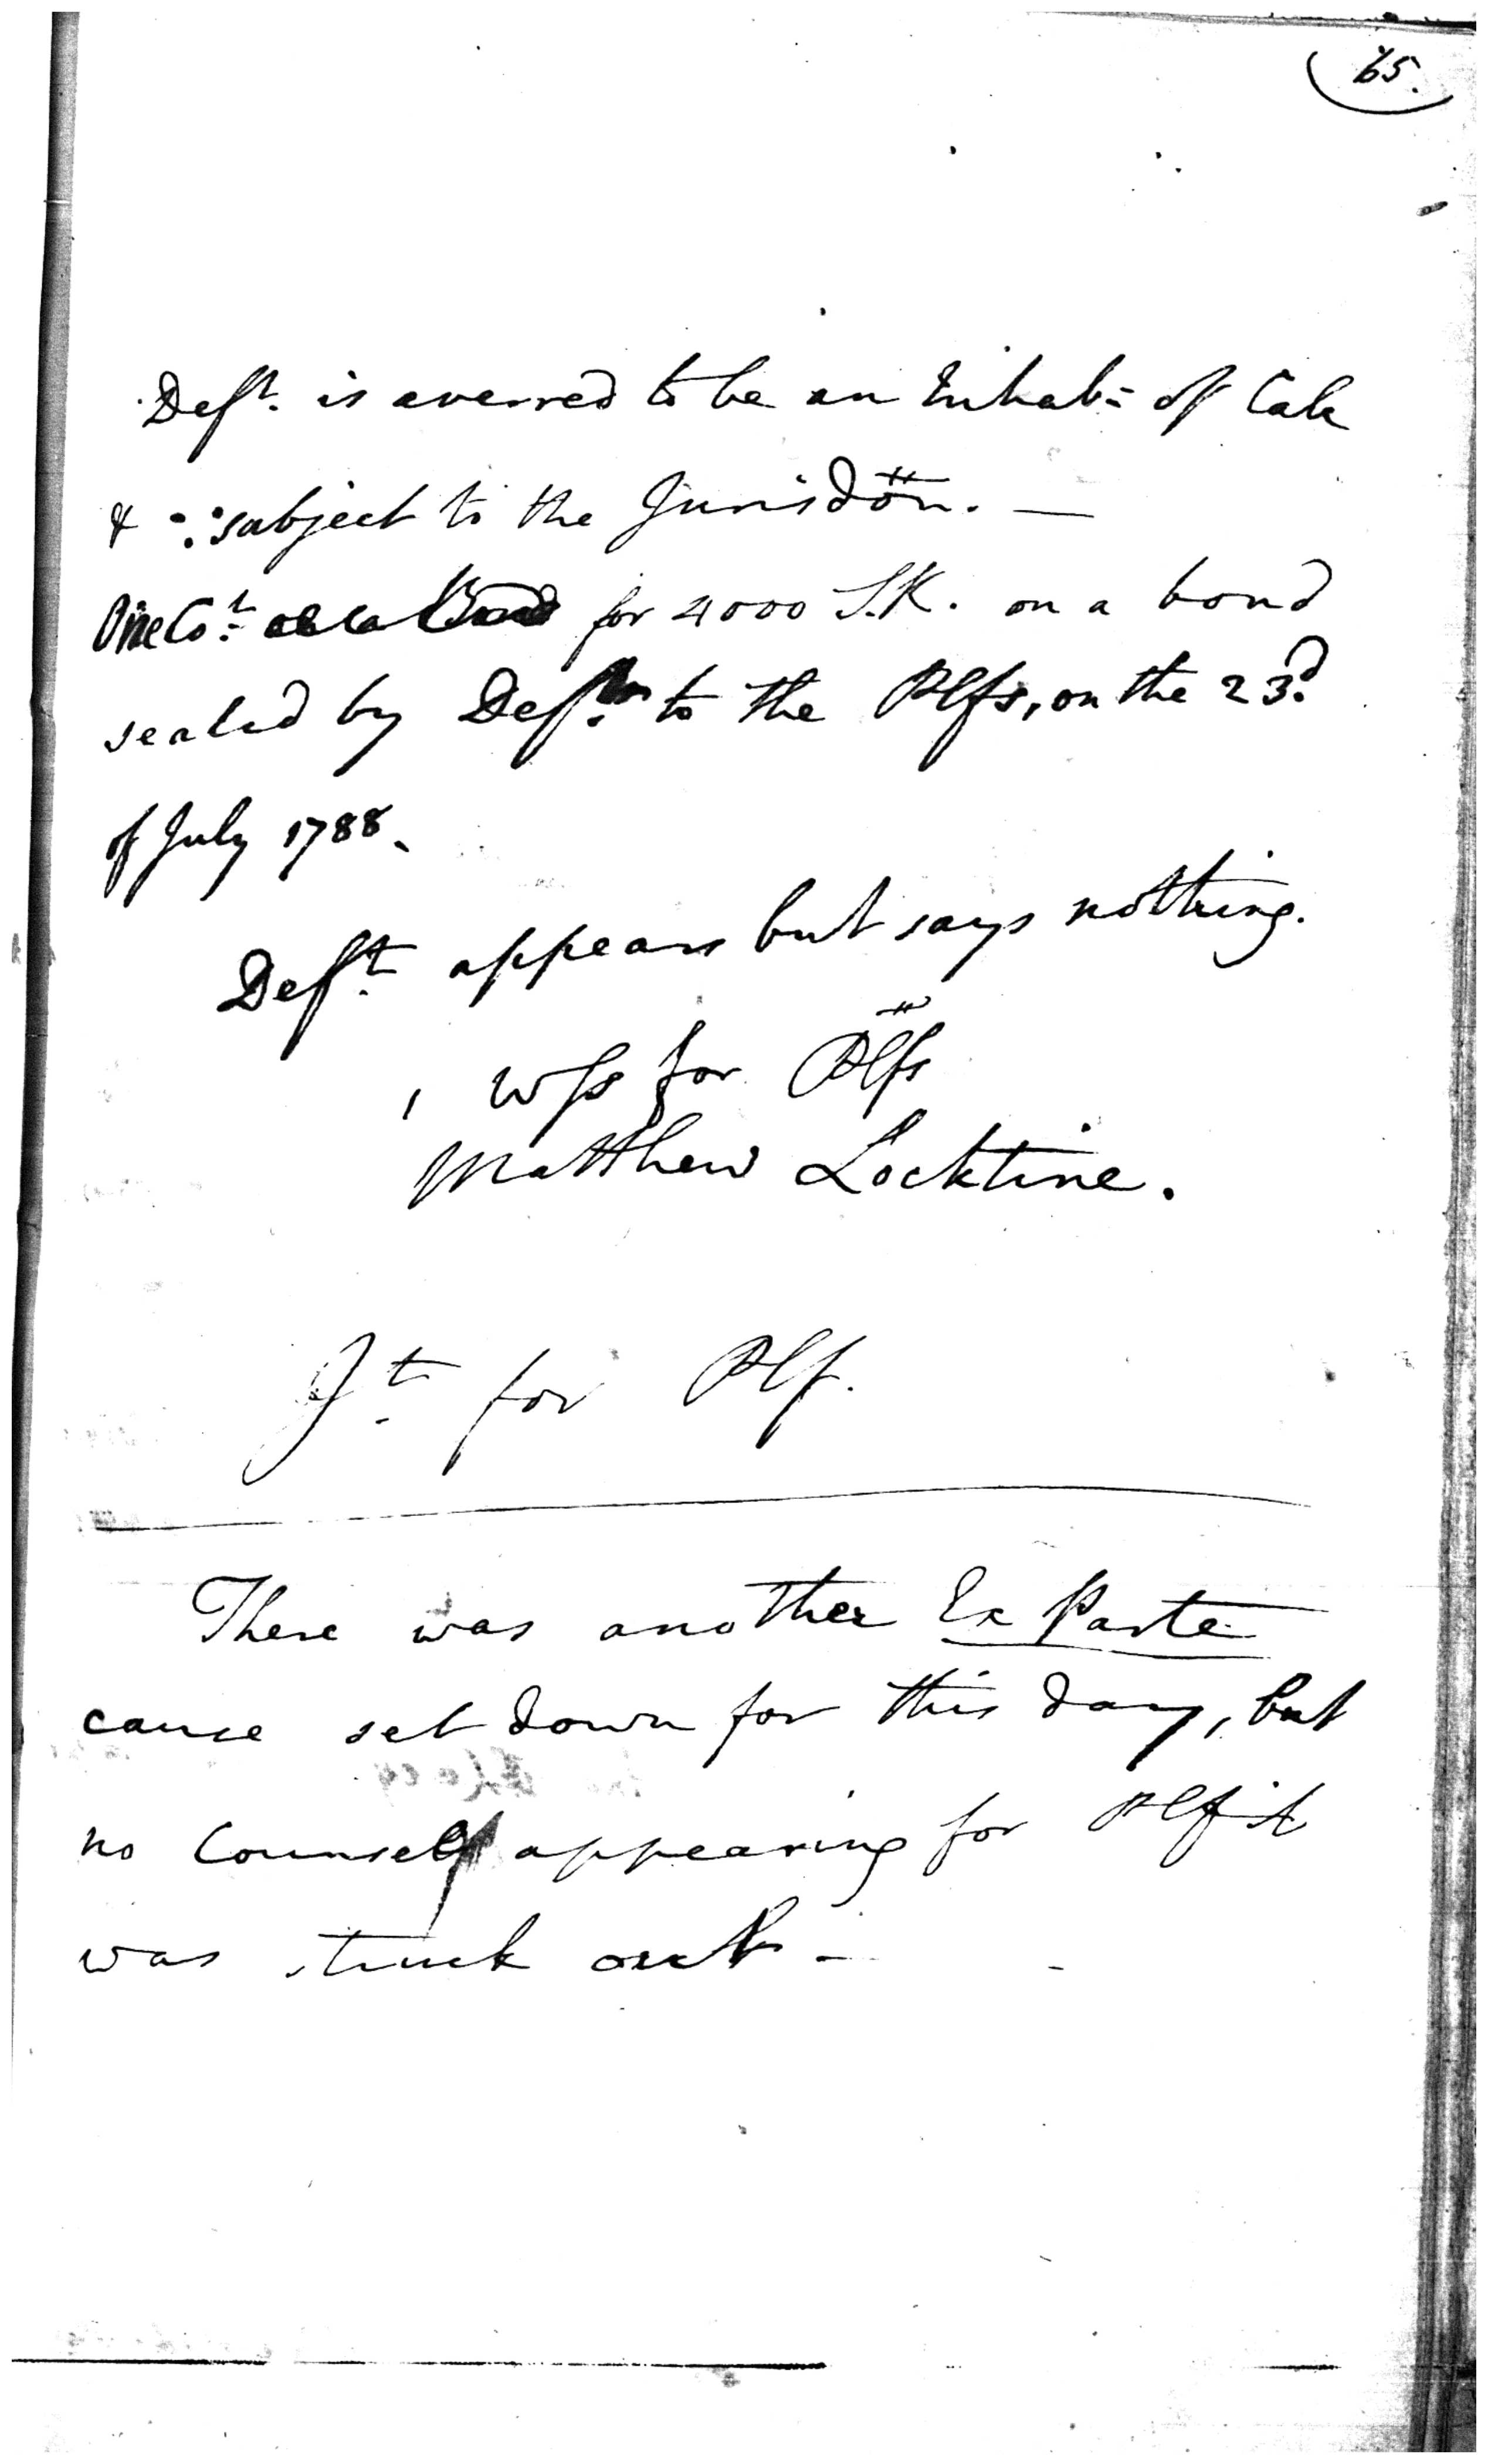 65.
Deft. is averred to be an Inhab: of Cala
& ∴ subject to the Jurisdon. —
One Ct. for 4000 S.R. on a bond
sealed by Deft. to the Plfs, on the 23d
of July 1788.
Deft. appears but says nothing.
1 Wss for Plfs
Matthew Locktine.
Jt. for Plf.
There was another Ex Parte
cause set down for this day, but
no Counsel appearing for Plf it
was struck out —